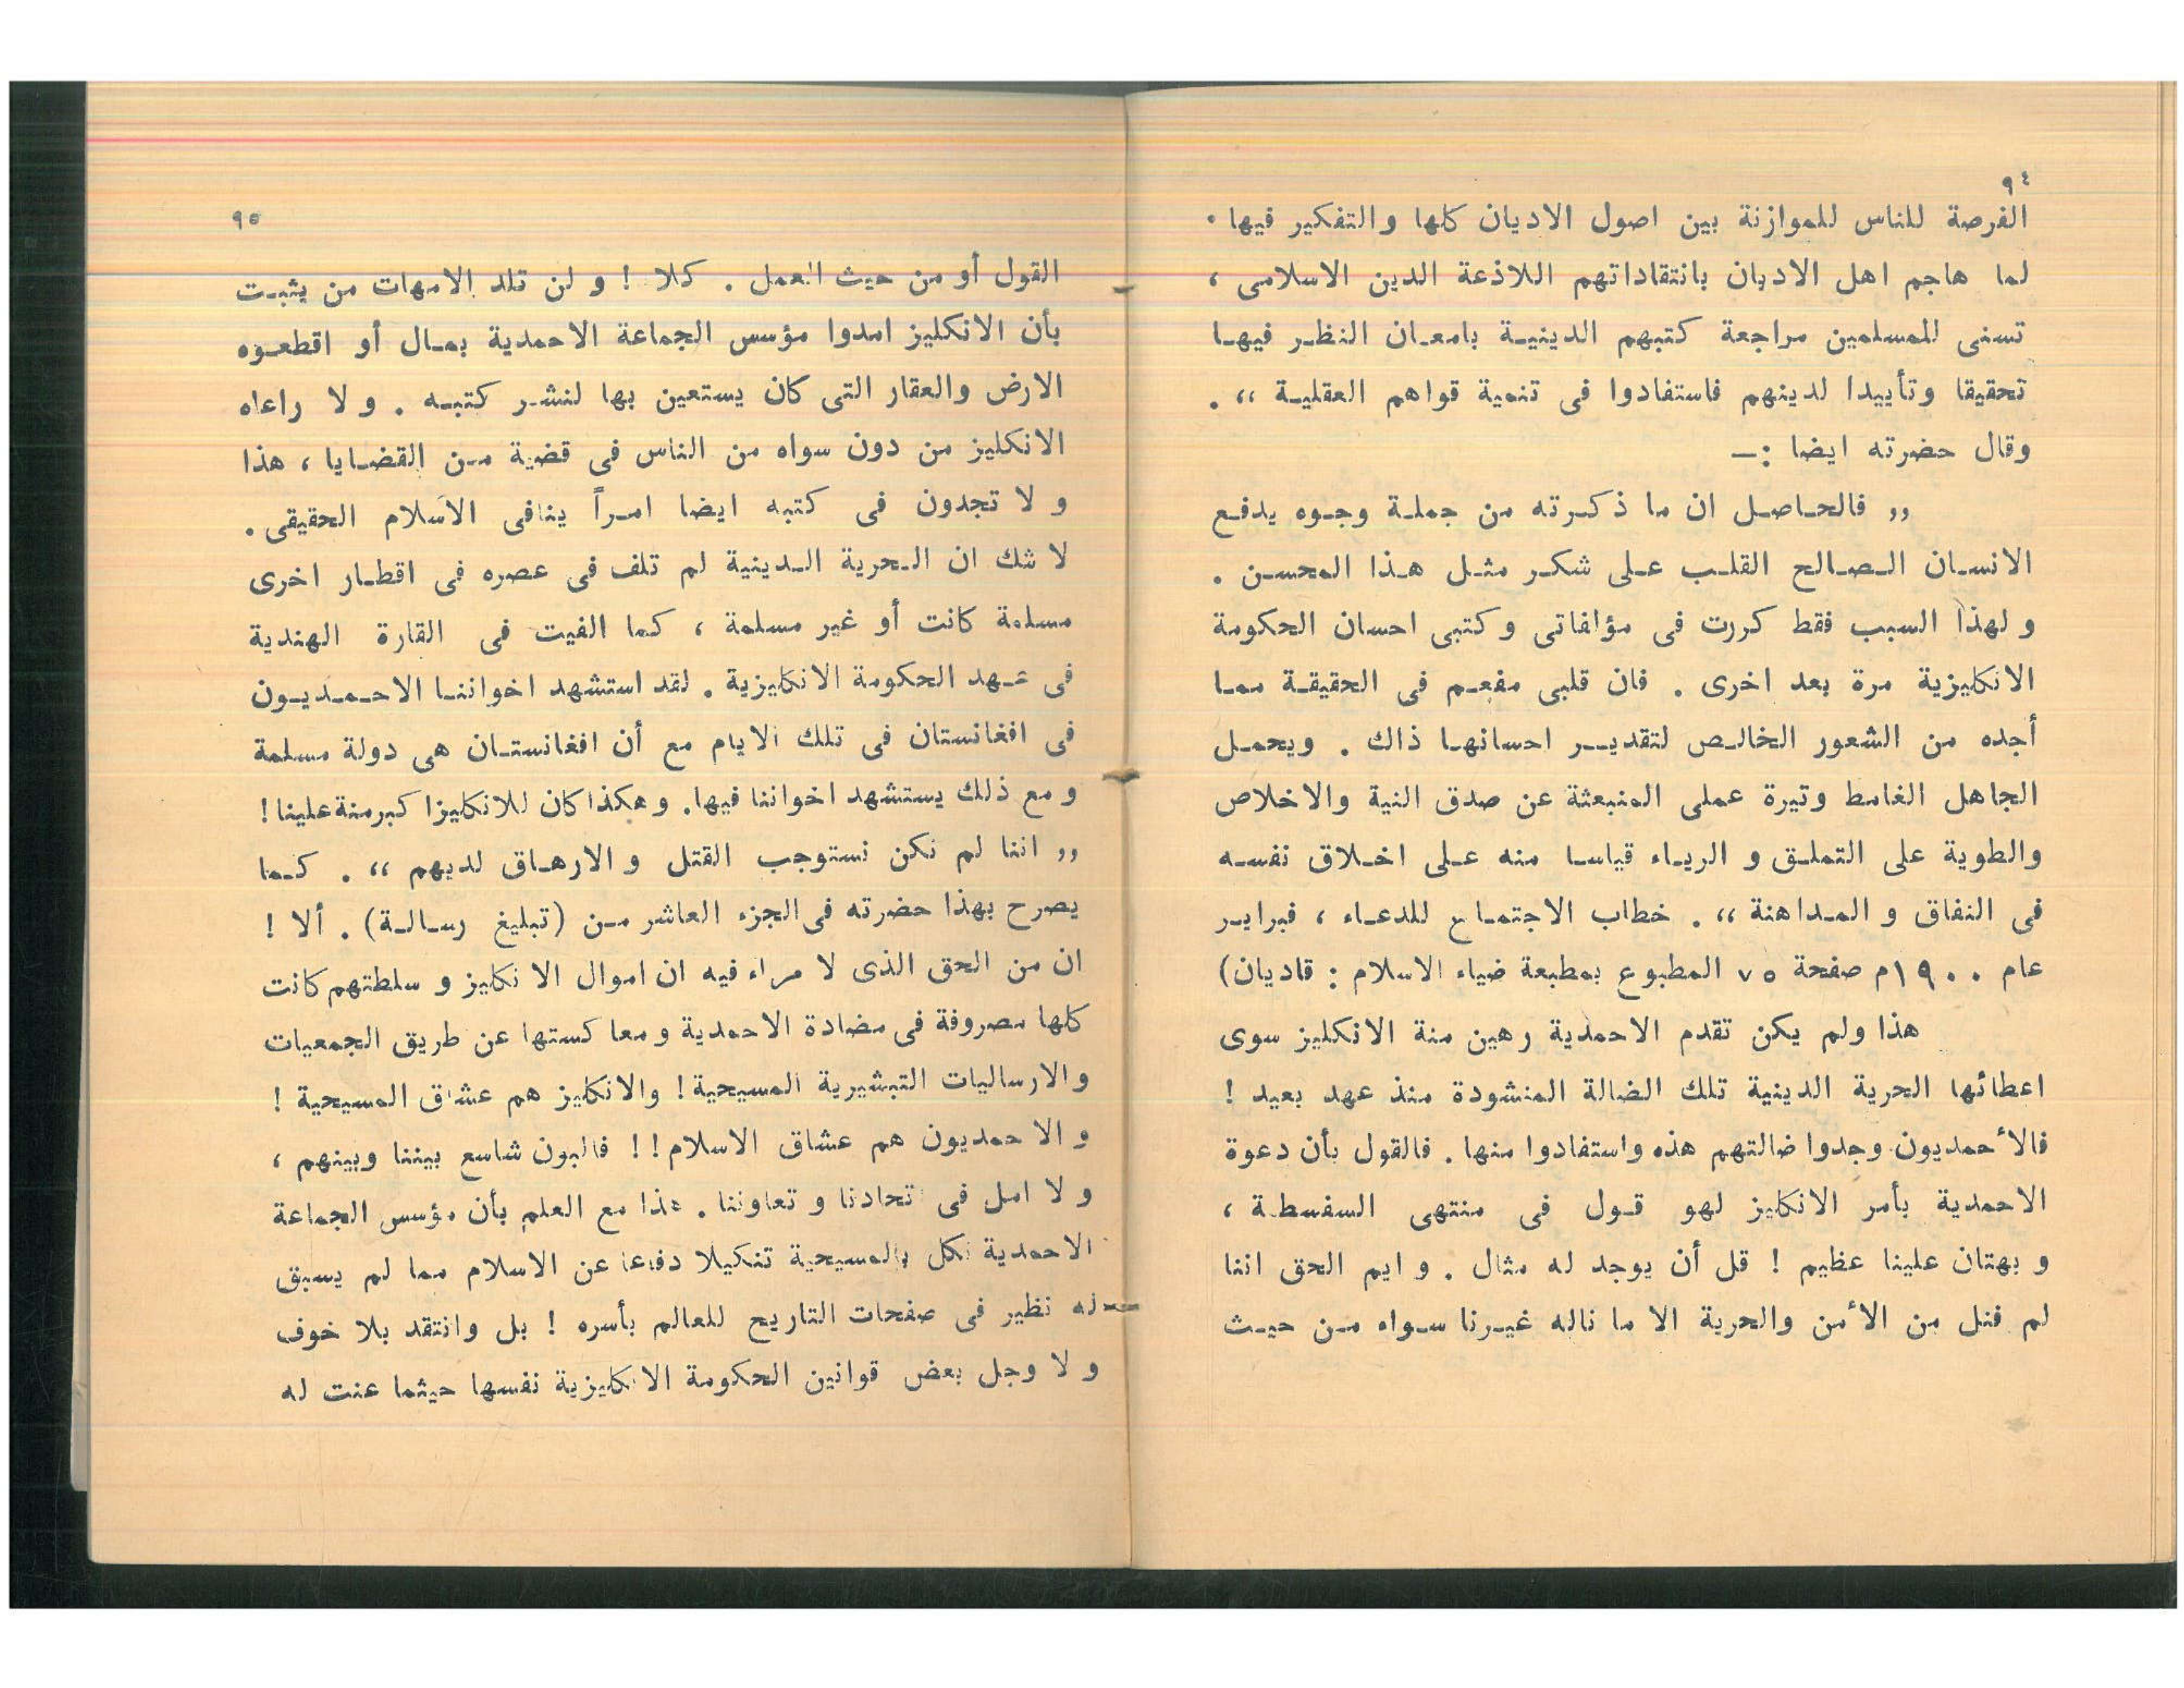 ٩٤
الفرصة للناس للموازنة بين اصول الاديان كلها والتفكير فيها .
لما هاجم اهل الاديان بانتقاداتهم اللاذعة الدين الاسلامى ،
تسنى للمسلمين مراجعة كتبهم الدينيـة بامعـان النظـر فيهـا
تحقيقا وتأييدا لدينهم فاستفادوا فى تنمية قواهم العقليـة ،، .
وقال حضرته ايضا :ـ
,, فالحـاصـل ان ما ذكـرته من جملـة وجـوه يدفـع
الانسـان الـصـالح القلـب عـلى شكـر مثـل هـذا المحسـن .
و لهذا السبب فقط كررت فى مؤلفاتى و كتبى احسان الحكومة
الانكليزية مرة بعد اخرى . فان قلبى مفعـم فى الحقيقـة ممـا
أجده من الشعور الخالـص لتقديـر احسانهـا ذاك . ويحمـل
الجاهل الغامط وتيرة عملى المنبعثة عن صدق النية والاخلاص
والطوية على التملـق و الريـاء قياسـا منه عـلى اخـلاق نفسـه
فى النفاق و المـداهنة ،، . خطاب الاجتمـاع للدعـاء ، فبرايـر
عام ١٩٠٠م صفحة ٧٥ المطبوع بمطبعة ضياء الاسلام : قاديان)
هذا ولم يكن تقدم الاحمدية رهين منة الانكليز سوى
اعطائها الحرية الدينية تلك الضالة المنشودة منذ عهد بعيد !
فالأحمديون وجدوا ضالتهم هذه واستفادوا منها . فالقول بأن دعوة
الاحمدية بأمر الانكليز لهو قـول فى منتهى السفسطـة ،
و بهتان علينا عظيم ! قل أن يوجد له مثال . و ايم الحق اننا
لم فنل من الأمن والحرية الا ما ناله غيـرنا سـواه مـن حيـث
٩٥
القول أو من حيث العمل . كلا ! و لن تلد الامهات من يثبـت
بأن الانكليز امدوا مؤسس الجماعة الاحمدية بمـال أو اقطعـوه
الارض والعقار التى كان يستعين بها لنشـر كتبـه . و لا راعاه
الانكليز من دون سواه من الناس فى قضية مـن القضـايا ، هذا
و لا تجدون فى كتبه ايضا امـراً ينافى الاسلام الحقيقى .
لا شك ان الـحرية الـدينية لم تلف فى عصره فى اقطـار اخرى
مسلمة كانت أو غير مسلمة ، كـما الفيت فى القارة الهندية
فى عـهد الحكومة الانكليزية . لقد استشهد اخواننـا الاحـمـديـون
فى افغانستان فى تلك الايام مع أن افغانستـان هى دولة مسلمة
و مع ذلك يستشهد اخواننا فيها. و هكذا كان للانكليزا كبرمنة علينا !
,, اننا لم نكن نستوجب القتل و الارهـاق لديهم ،، . كـما
يصرح بهذا حضرته فى الجزء العاشر مـن (تبليغ رسـالـة) . ألا !
ان من الحق الذى لا مراء فيه ان اموال الا نكليز و سلطتهم كانت
كلها مصروفة فى مضادة الاحمدية و معا كستها عن طريق الجمعيات
والارساليات التبشيرية المسيحية ! والانكليز هم عشاق المسيحية !
و الا حمديون هم عشاق الاسلام ! ! فالبون شاسع بيننا وبينهم ،
و لا امل فى اتحادنا و تعاوننا . هذا مع العلم بأن مؤسس الجماعة
الاحمدية نكل بالمسيحية تنكيلا دفاعا عن الاسلام مما لم يسبق
له نظير فى صفحات التاريح للعالم بأسره ! بل وانتقد بلا خوف
و لا وجل بعض قوانين الحكومة الانكليزية نفسها حيثما عنت له